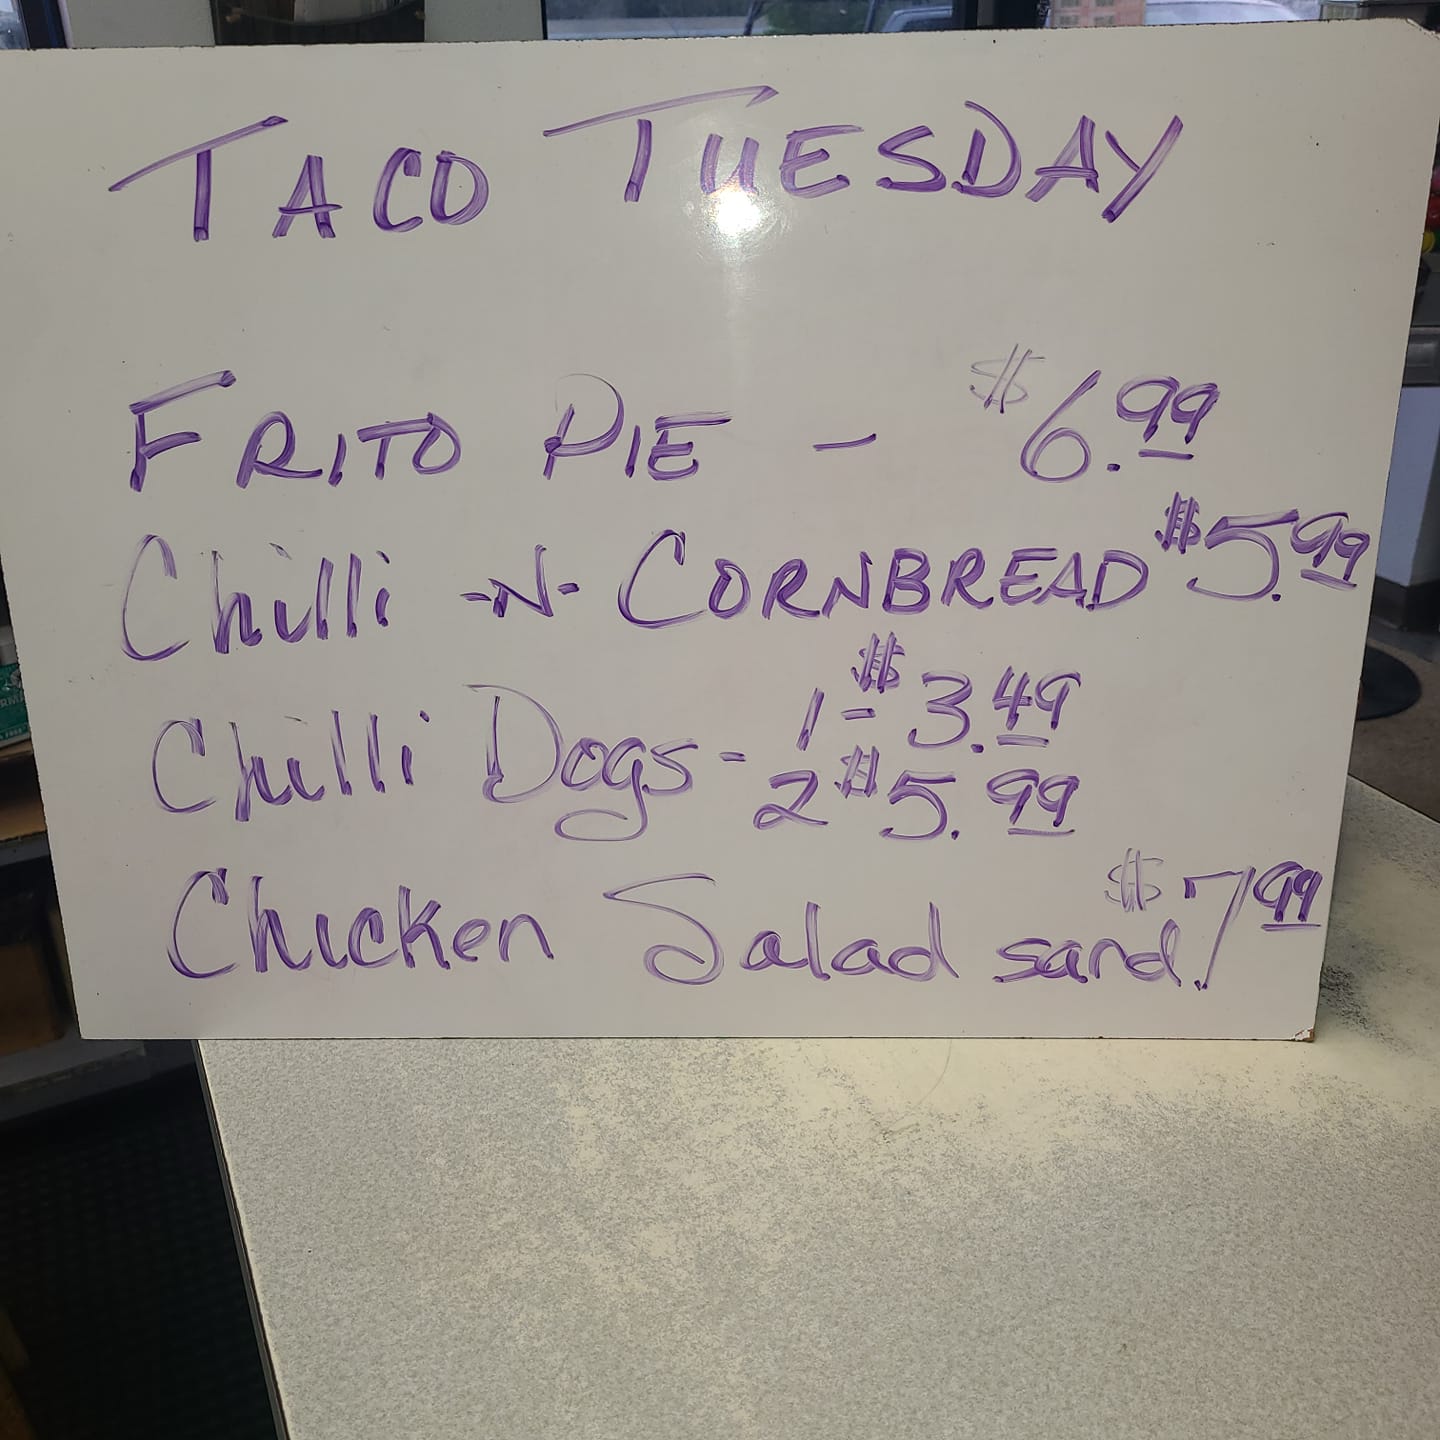 TACO TUESDAY
FRITO PIE - $6.99
Chilli -N- CORNBREAD $5.99
Chilli Dogs - 1 - $3.49
2 $5.99
Chicken Salad sand $7.99